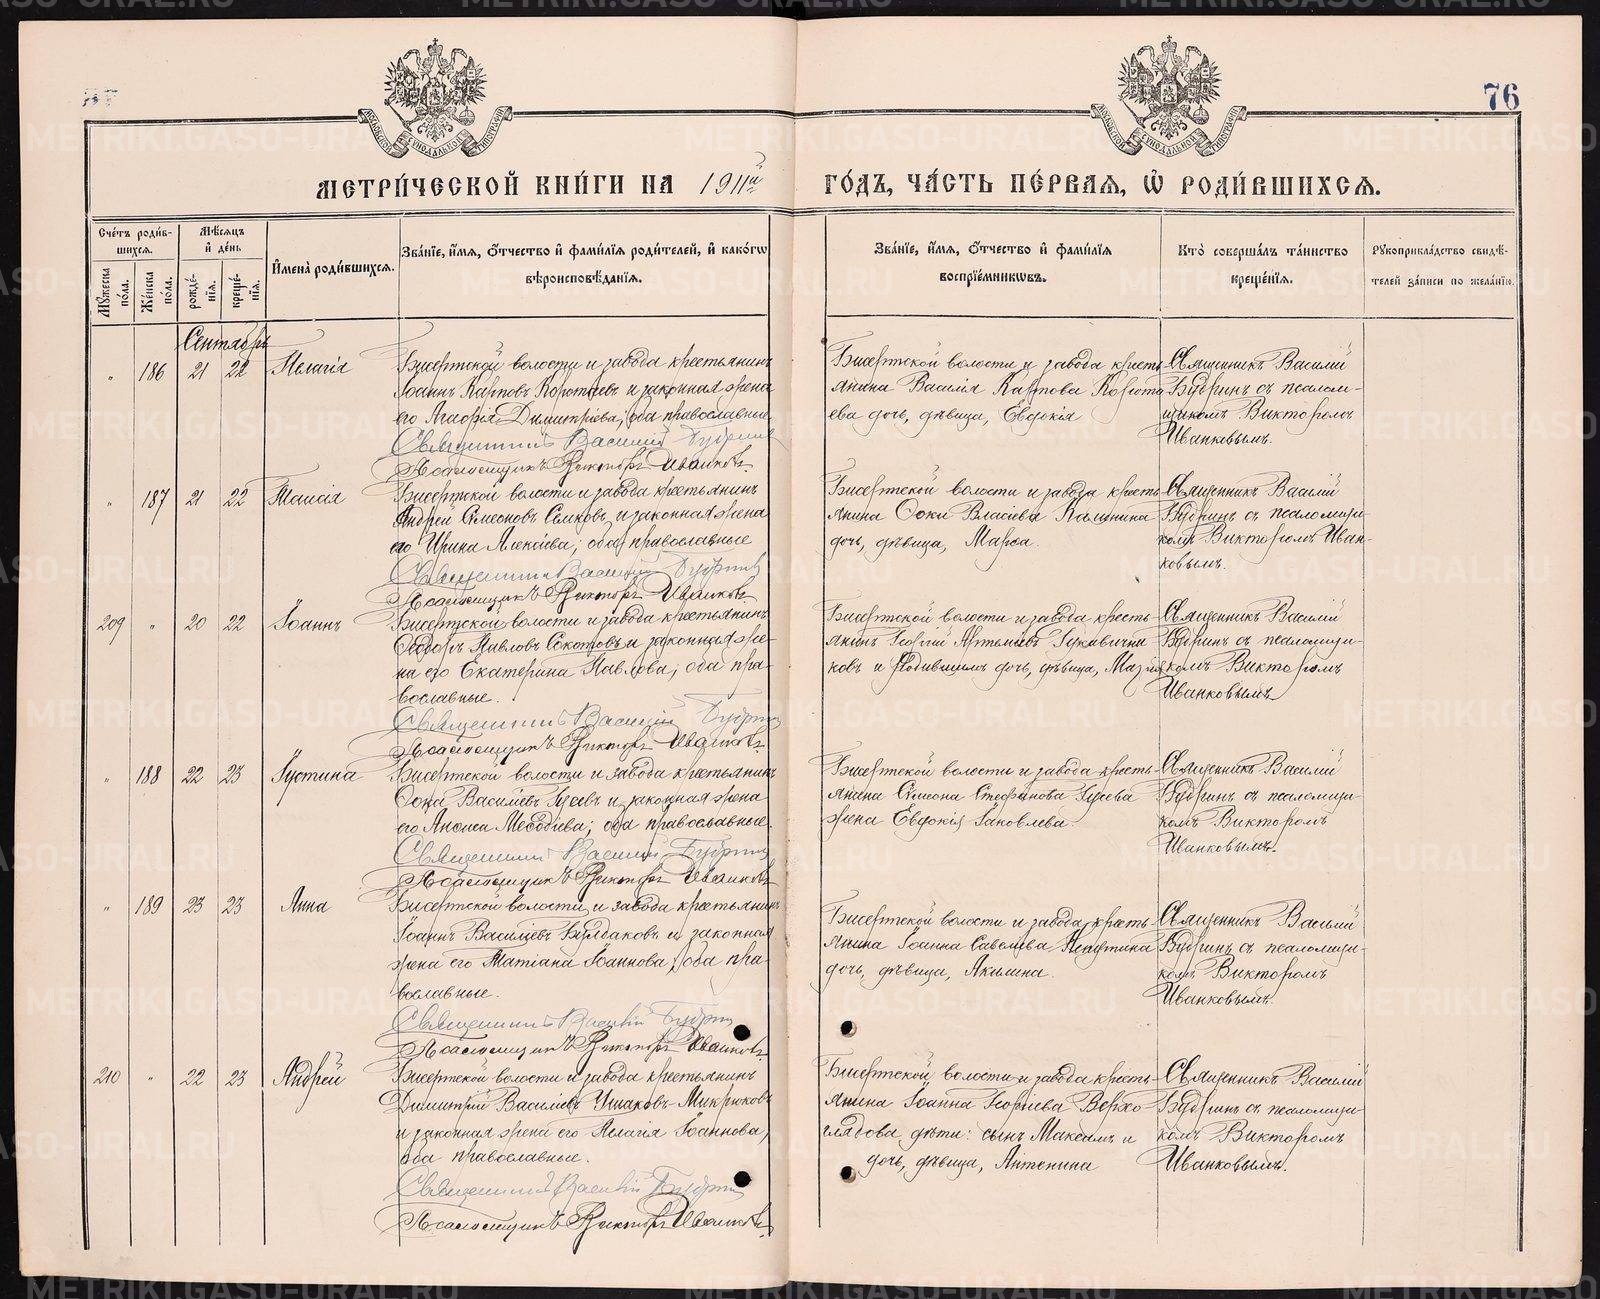 76
МЕТРИ́ЧЕСКОЙ КНИ́ГИ НА 1911й ГО́ДЪ, ЧА́СТЬ ПЕ́РВАЯ, Ѡ РОДИ́ВШИХСЯ.
Сче́тъ роди́в-
шихся.
Му́жеска по́ла.
Же́нска по́ла.
Мѣ́сяцъ
и де́нь
рожде́-
нія.
креще́-
нія.
Имена̀ роди́вшихся.
Зва́ніе, и́мя, о́тчество и фами́лія роди́телей, и како́гѡ
вѣроисповѣ́данія.
Зва́ніе, и́мя, о́тчество и фами́лія
воспріе́мникѡвъ.
Кто̀ соверша́лъ та́инство
креще́нія.
Рукоприкла́дство свидѣ́-
телей за́писи по жела́нію.
Сентябрь
" 186 21 22 Пелагія
Бисертской волости и завода крестьянинъ
Іоаннъ Карповъ Коротаевъ и законная жена
его Агафія Димитріева; оба православные
Священникъ Василий Будринъ
Псаломщикъ Викторъ Иванковъ
Бисертской волости и завода кресть-
янина Василія Карпова Корота-
ева дочь, дѣвица, Евдокія
Священникъ Василій
Будринъ съ псалом-
щикомъ Викторомъ
Иванковымъ.
" 187 21 22 Таисія
Бисертской волости и завода крестьянинъ
Андрей Симеоновъ Семковъ и законная жена
его Ирина Алексіева; оба православные
Священникъ Василий Будринъ
Псаломщикъ Викторъ Иванковъ
Бисертской волости и завода кресть-
янина Ѳоки Власіева Калинина
дочь, дѣвица, Марѳа.
Священникъ Василій
Будринъ съ псаломщи-
комъ Викторомъ Иван-
ковымъ.
209 " 20 22 Іоаннъ
Бисертской волости и завода крестьянинъ
Ѳеодоръ Павловъ Сокотовъ и законная же-
на его Екатерина Павлова; оба пра-
вославные.
Священникъ Василий Будринъ
Псаломщикъ Викторъ Иванковъ
Бисертской волости и завода кресть-
янинъ Георгій Артемьевъ
ковъ и дочь, дѣвица, Марія
Священникъ Василій
Будринъ съ псаломщи-
комъ Викторомъ
Иванковымъ
" 188 22 23 Іустина
Бисертской волости и завода крестьянинъ
Ѳока Васильевъ Гусевъ и законная жена
его Анѳиса Меѳодіева; оба православные.
Священникъ Василий Будринъ
Псаломщикъ Викторъ Иванковъ
Бисертской волости и завода кресть-
янина Симеона Стефанова Гусева
жена Евдокія Іаковлева.
Священникъ Василій
Будринъ съ псаломщи-
комъ Викторомъ
Иванковымъ.
" 189 23 23 Анна
Бисертской волости и завода крестьянинъ
Іоаннъ Васильевъ Булдаковъ и законная
жена его Татіана Іоаннова; оба пра-
вославные.
Священникъ Василій Будринъ
Псаломщикъ Викторъ Иванковъ
Бисертской волости и завода кресть-
янина Іоанна Савельева
дочь, дѣвица, Акилина.
Священникъ Василій
Будринъ съ псаломщи-
комъ Викторомъ
Иванковымъ.
210 " 22 23 Андрей
Бисертской волости и завода крестьянинъ
Димитрій Васильевъ Ушаковъ-Микрюковъ
и законная жена его Пелагія Іоаннова;
оба православные.
Священникъ Василій Будринъ
Псаломщикъ Викторъ Иванковъ
Бисертской волости и завода кресть-
янина Іоанна Георгіева Верхо-
глядова дѣти: сынъ Максимъ и
дочь, дѣвица, Антонина
Священникъ Василій
Будринъ съ псаломщи-
комъ Викторомъ
Иванковымъ.